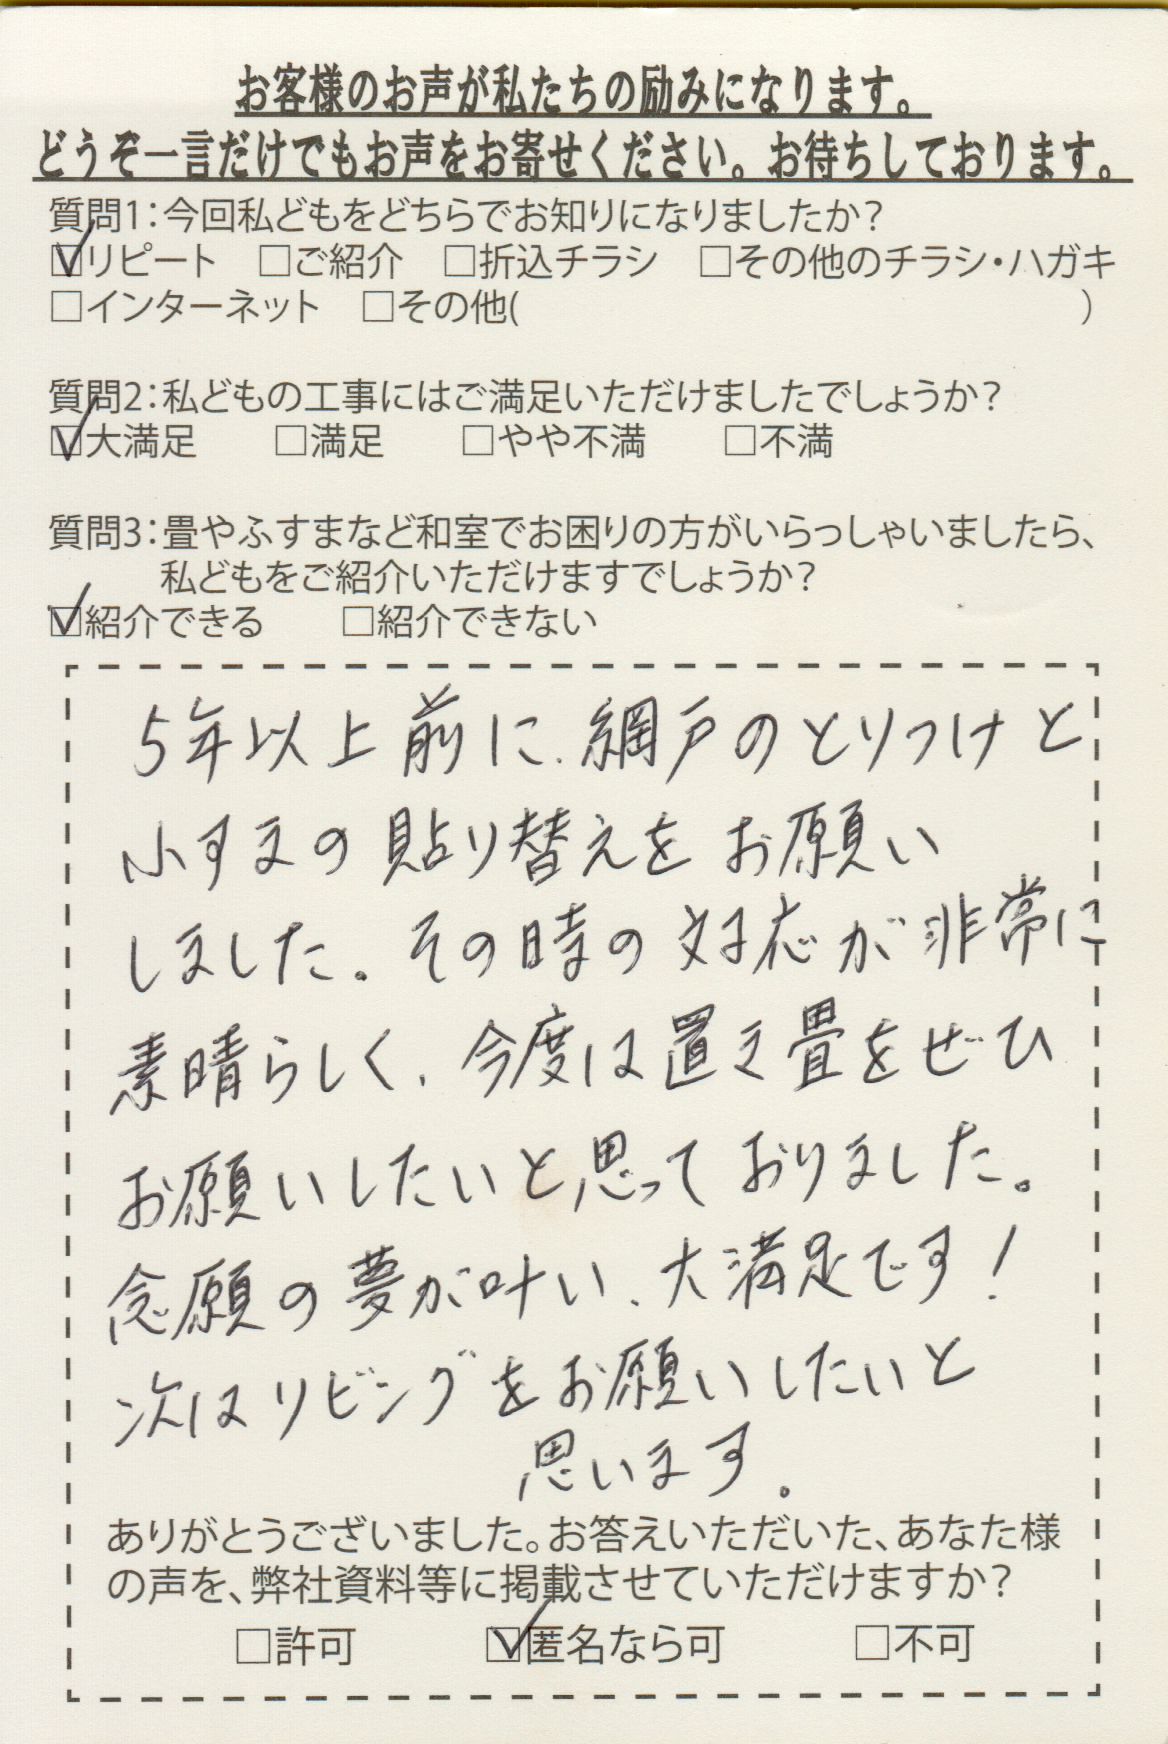 お客様のお声が私たちの励みになります。
どうぞ一言だけでもお声をお寄せください。お待ちしております。
質問1：今回私どもをどちらでお知りになりましたか？
☑リピート　□ご紹介　□折込チラシ　□その他のチラシ・ハガキ
□インターネット　□その他(　　　　　　　　　　)
質問2：私どもの工事にはご満足いただけましたでしょうか？
☑大満足　□満足　□やや不満　□不満
質問3：畳やふすまなど和室でお困りの方がいらっしゃいましたら、
私どもをご紹介いただけますでしょうか？
☑紹介できる　□紹介できない
5年以上前に、網戸のとりつけと
ふすまの貼り替えをお願い
しました。その時の対応が非常に
素晴らしく、今度は置き畳をぜひ
お願いしたいと思っておりました。
念願の夢が叶い、大満足です！
次はリビングをお願いしたいと
思います。
ありがとうございました。お答えいただいた、あなた様
の声を、弊社資料等に掲載させていただけますか？
□許可　☑匿名なら可　□不可